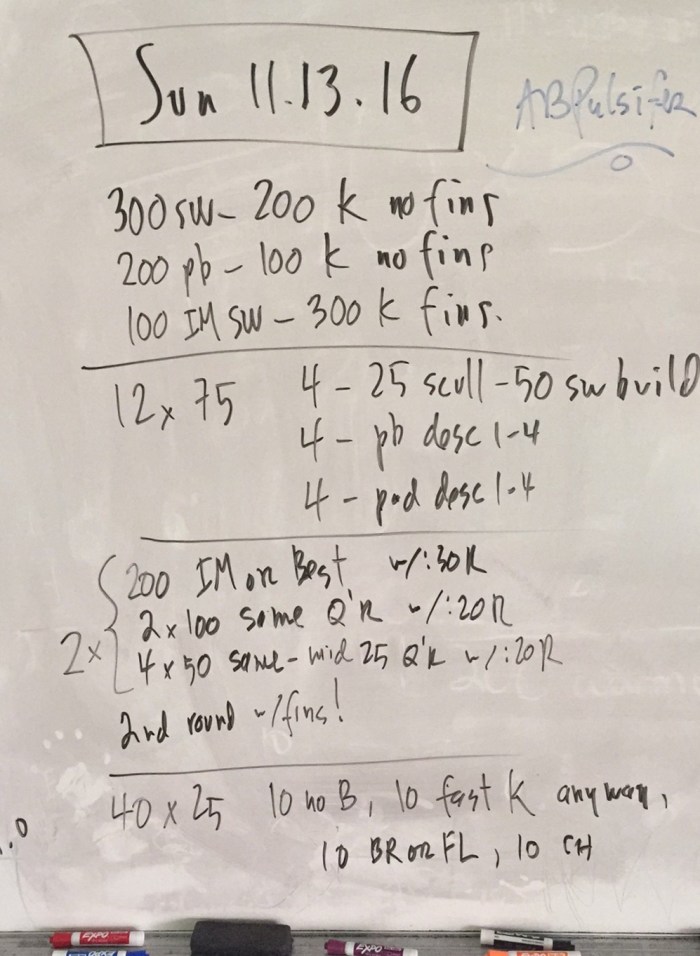 Sun 11.13.16
ABPulsifer
300 sw - 200 k no fins
200 pb - 100 k no fins
100 IM sw - 300 k fins.
12 x 75 4 - 25 scull - 50 sw build
4 - pb desc 1-4
4 - pad desc 1-4
200 IM or Best w/:30R
2 x 100 same Q'R w/:20R
2x
4 x 50 same - mid 25 Q'R w/:20R
2nd round w/fins!
40 x 25 10 no B, 10 fast K anyway,
10 BR or FL, 10 CH
EXPO
EXPO